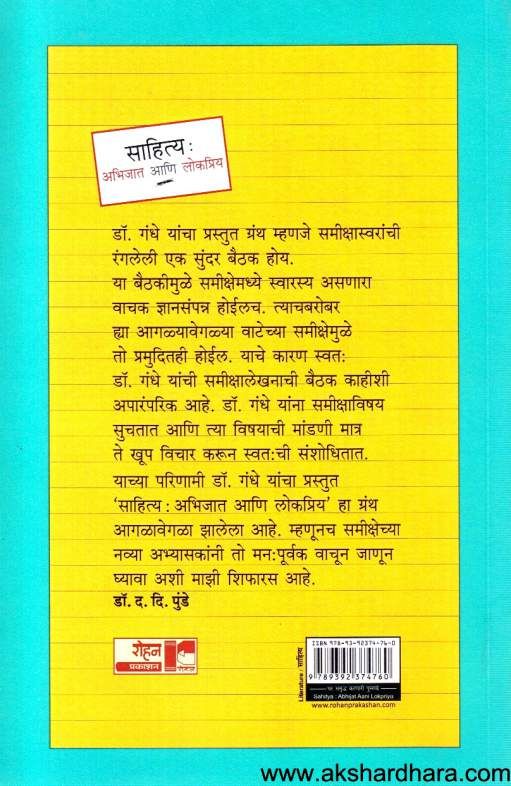 साहित्य :
अभिजात आणि लोकप्रिय
डॉ. गंधे यांचा प्रस्तुत ग्रंथ म्हणजे समीक्षास्वरांची
रंगलेली एक सुंदर बैठक होय.
या बैठकीमुळे समीक्षेमध्ये स्वारस्य असणारा
वाचक ज्ञानसंपन्न होईलच. त्याचबरोबर
ह्या आगळ्यावेगळ्या वाटेच्या समीक्षेमुळे
तो प्रमुदितही होईल. याचे कारण स्वत:
डॉ. गंधे यांची समीक्षालेखनाची बैठक काहीशी
अपारंपरिक आहे. डॉ. गंधे यांना समीक्षाविषय
सुचतात आणि त्या विषयाची मांडणी मात्र
ते खूप विचार करून स्वत:ची संशोधितात.
याच्या परिणामी डॉ. गंधे यांचा प्रस्तुत
‘साहित्य : अभिजात आणि लोकप्रिय’ हा ग्रंथ
आगळावेगळा झालेला आहे. म्हणूनच समीक्षेच्या
नव्या अभ्यासकांनी तो मन:पूर्वक वाचून जाणून
घ्यावा अशी माझी शिफारस आहे.
डॉ. द. दि. पुंडे
रोहन
प्रकाशन
Literature : साहित्य
ISBN 978-93-92374-76-0
9 789392 374760
Sahitya : Abhijat Aani Lokpriya
www.rohanprakashan.com
www.akshardhara.com